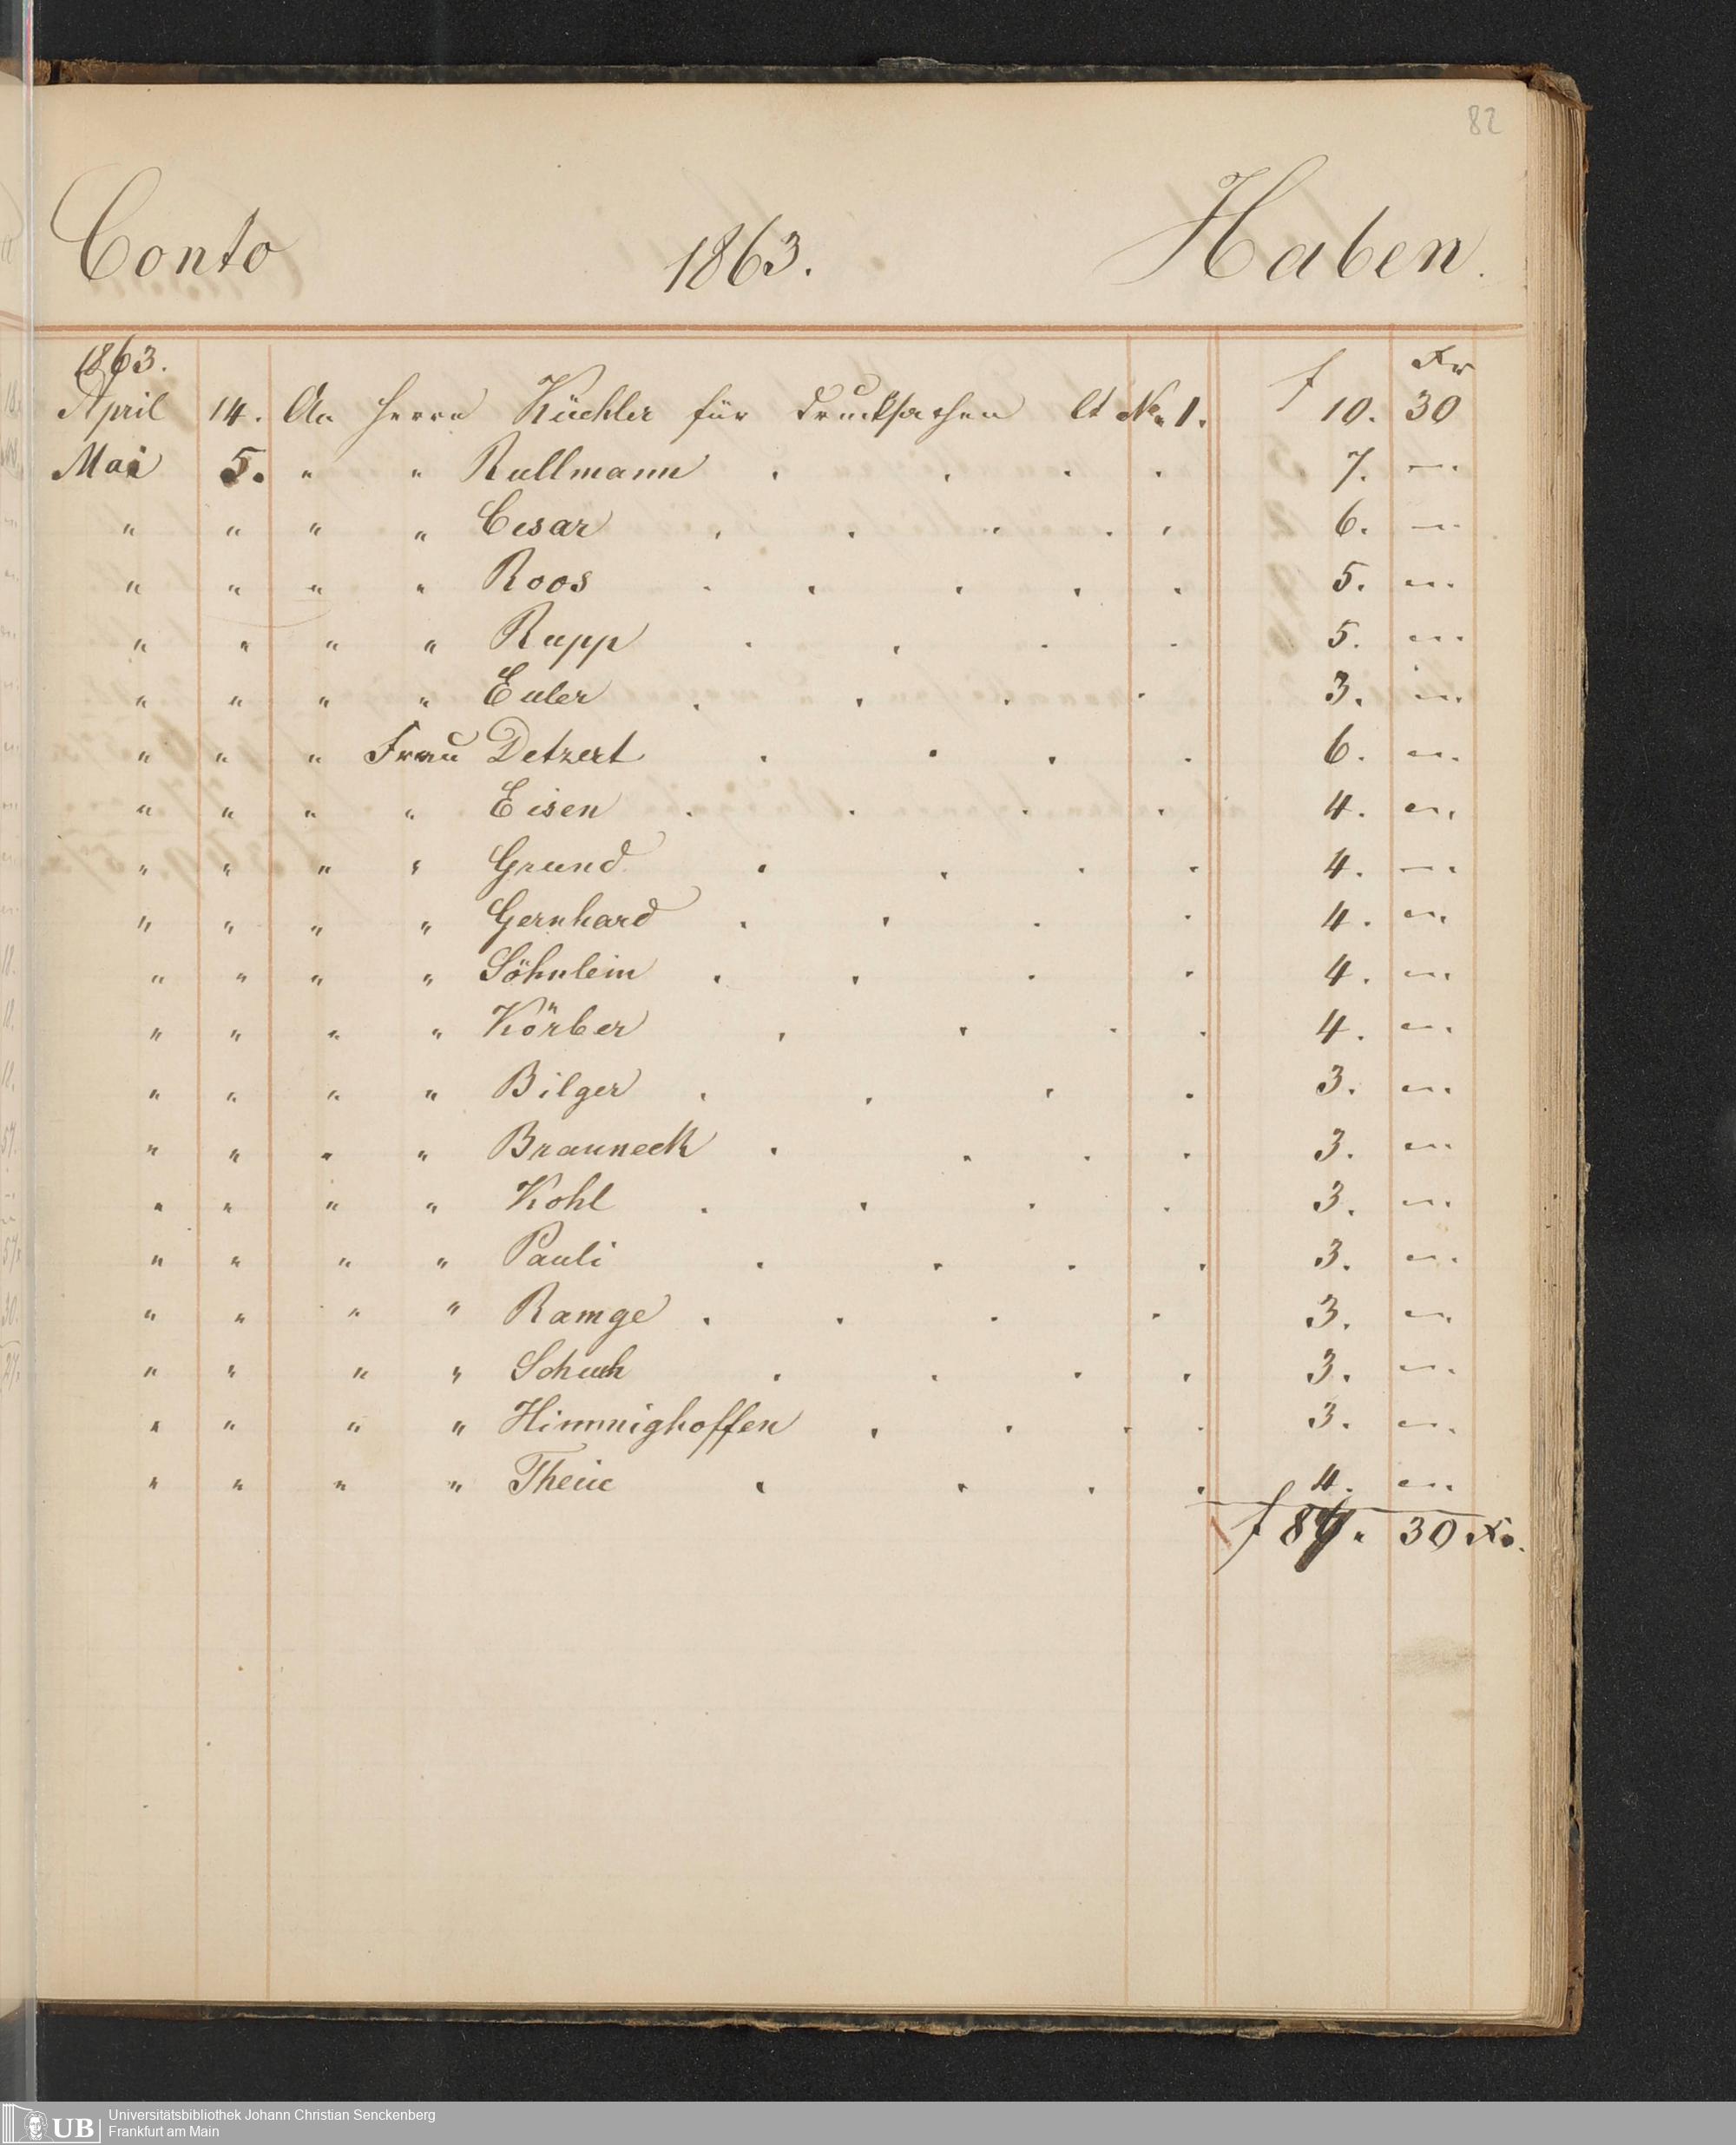 82
Conto 1863. Haben.
1863. f Xr
April 14. An Herrn Küchler für Drucksachen lt No. 1. 10. 30
Mai 5. " " Rullmann . . . . 7. —.
" " " " Cesar . . . . . 6. —.
" " " " Roos . . . . . 5. —.
" " " " Rupp . . . . 5. —.
" " " " Euler . . . . 3. —.
" " " Frau Detzert . . . . 6. —.
" " " " Eisen . . . . 4. —.
" " " " Grund . . . . 4. —.
" " " " Gernhard . . . . 4. —.
" " " " Söhnlein . . . . 4. —.
" " " " Körber . . . . 4. —.
" " " " Bilger . . . . 3. —.
" " " " Brauneck . . . . 3. —.
" " " " Kohl . . . . 3. —.
" " " " Pauli . . . . 3. —.
" " " " Ramge . . . . 3. —.
" " " " Schuch . . . . 3. —.
" " " " Himmighoffen . . . . 3. —.
" " " " . . . . 4. —.
f 87. 30 Xr.
UB Universitätsbibliothek Johann Christian Senckenberg
Frankfurt am Main